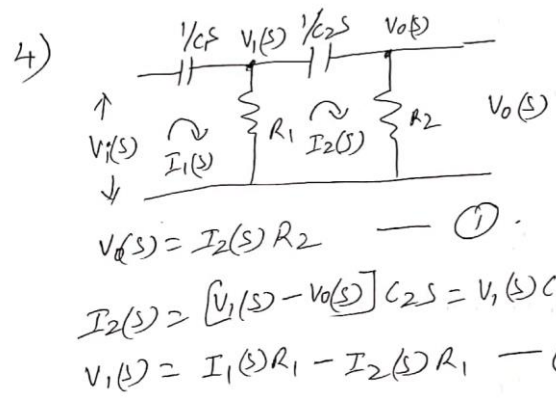 4)
1/C1S V1(S) 1/C2S V0(S)
Vi(S) I1(S) R1 I2(S) R2 V0(S)
V0(S) = I2(S) R2 — ①.
I2(S) = [V1(S) - V0(S)] C2S = V1(S) C
V1(S) = I1(S) R1 - I2(S) R1 —